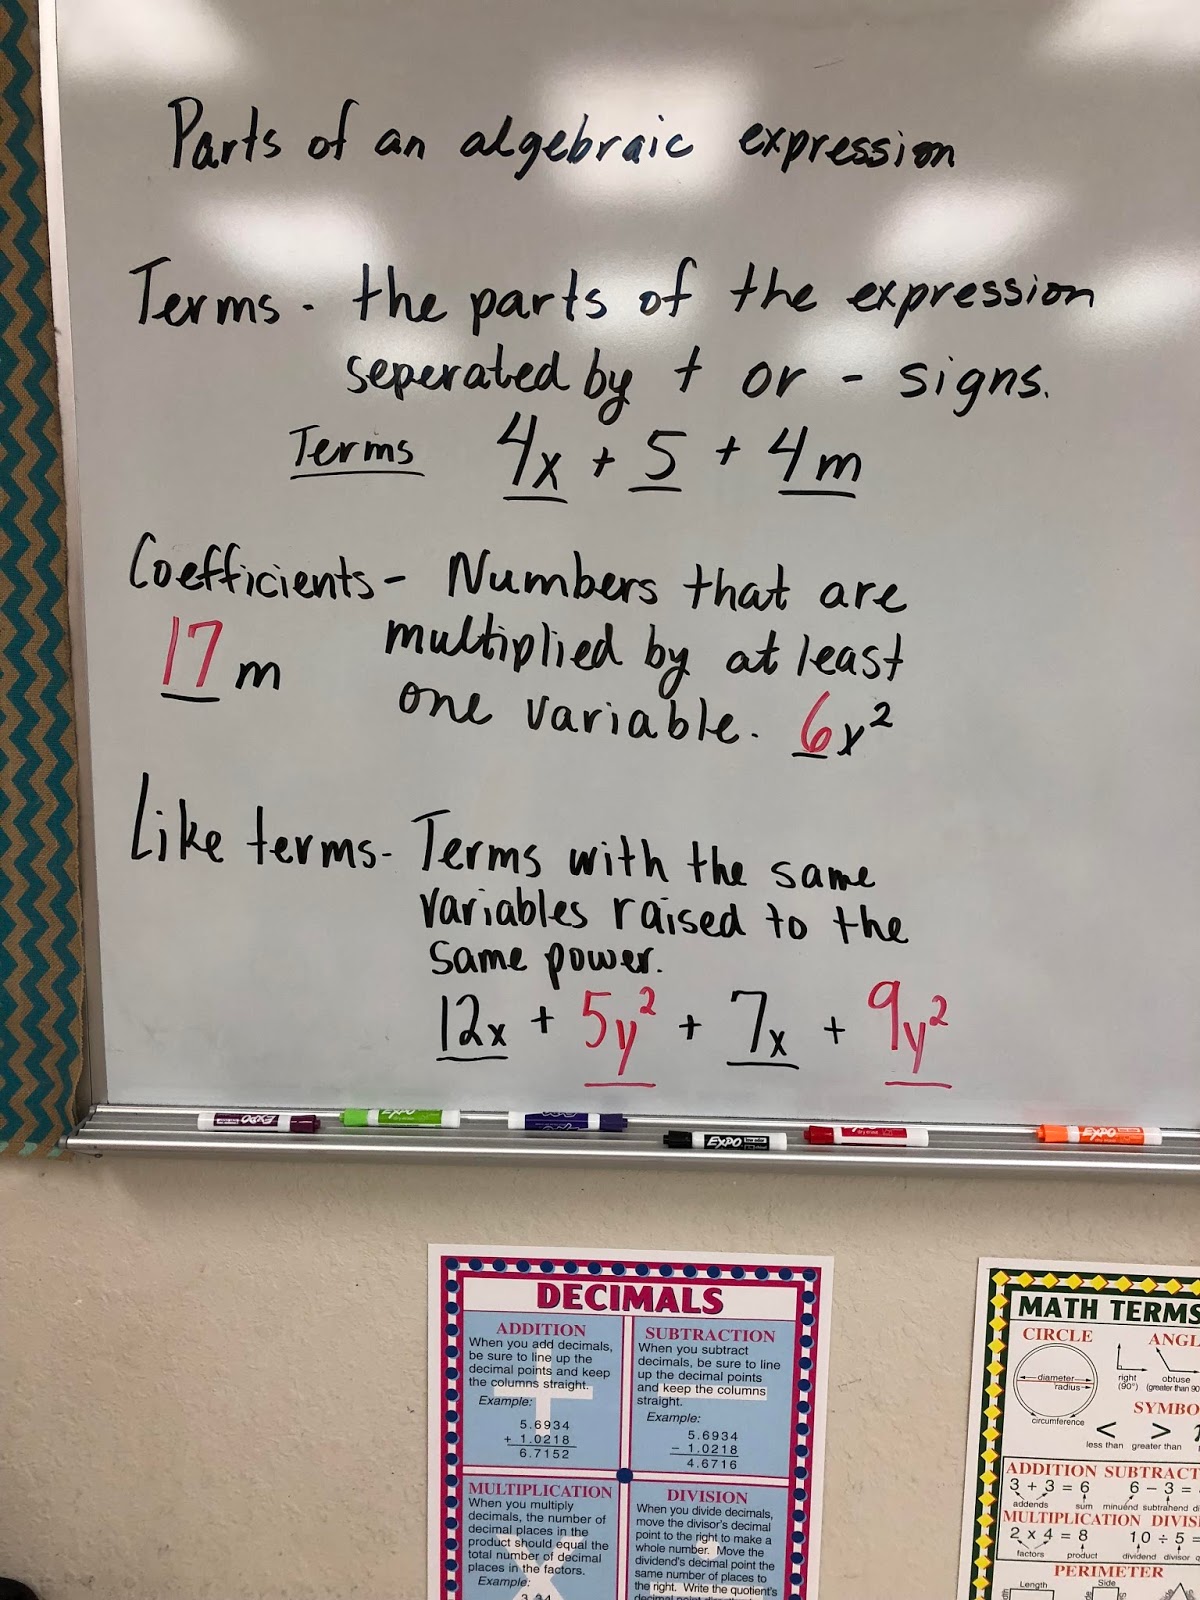 Parts of an algebraic expression
Terms - the parts of the expression
seperated by + or - signs.
Terms 4x + 5 + 4m
Coefficients - Numbers that are
multiplied by at least
one variable.
17m
6x²
Like terms - Terms with the same
variables raised to the
same power.
12x + 5y² + 7x + 9y²
EXPO
EXPO
EXPO
EXPO
DECIMALS
ADDITION
When you add decimals,
be sure to line up the
decimal points and keep
the columns straight.
Example:
5.6934
+ 1.0218
6.7152
SUBTRACTION
When you subtract
decimals, be sure to line
up the decimal points
and keep the columns
straight.
Example:
5.6934
− 1.0218
4.6716
MULTIPLICATION
When you multiply
decimals, the number of
decimal places in the
product should equal the
total number of decimal
places in the factors.
Example:
3.34
DIVISION
When you divide decimals,
move the divisor's decimal
point to the right to make a
whole number. Move the
dividend's decimal point the
same number of places to
the right. Write the quotient's
decimal point
MATH TERMS
CIRCLE
diameter
radius
circumference
ANGL
right
(90°)
obtuse
(greater than 90
SYMBO
< >
less than greater than
ADDITION SUBTRACT
3 + 3 = 6 6 − 3 =
addends sum minuend subtrahend di
MULTIPLICATION DIVIS
2 x 4 = 8 10 ÷ 5 =
factors product dividend divisor
PERIMETER
Length Side